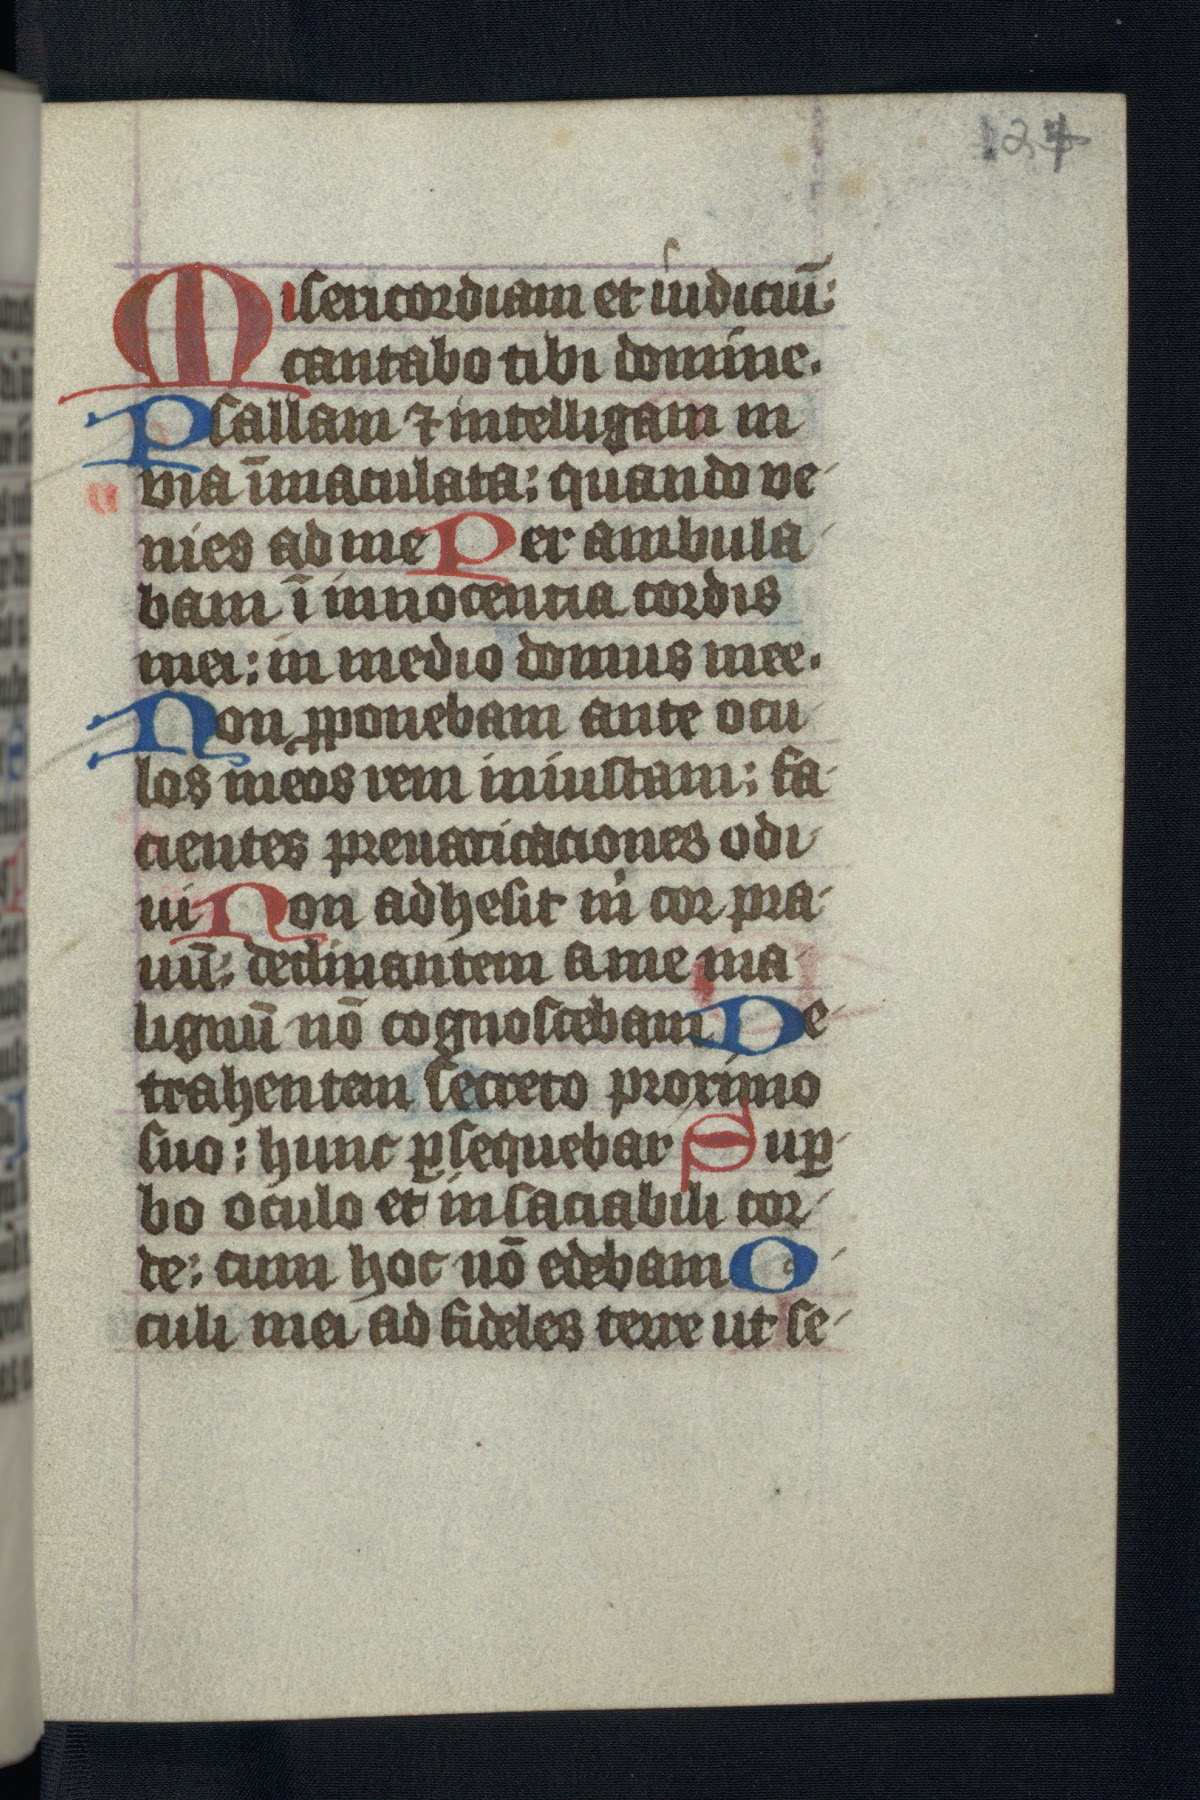 124
Misericordiam et iudiciū:
cantabo tibi domine.
Psallam ⁊ intelligam in
via īmaculata: quando ve
nies ad me Per ambula
bam ī innocencia cordis
mei: in medio domus mee.
Non ꝓponebam ante ocu
los meos rem iniustam: fa
cientes preuaricaciones odi
ui Non adhesit m̓ cor pra
uū: declinantem a me ma
lignū nō cognoscebam De
trahentem secreto proximo
suo: hunc ꝑsequebar Suꝑ
bo oculo et insaciabili cor
de: cum hoc nō edebam O
culi mei ad fideles terre ut se